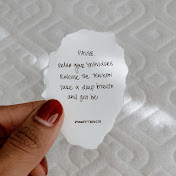 PAUSE.
Relax your shoulders
Release the tension
Take a deep breath
and just be